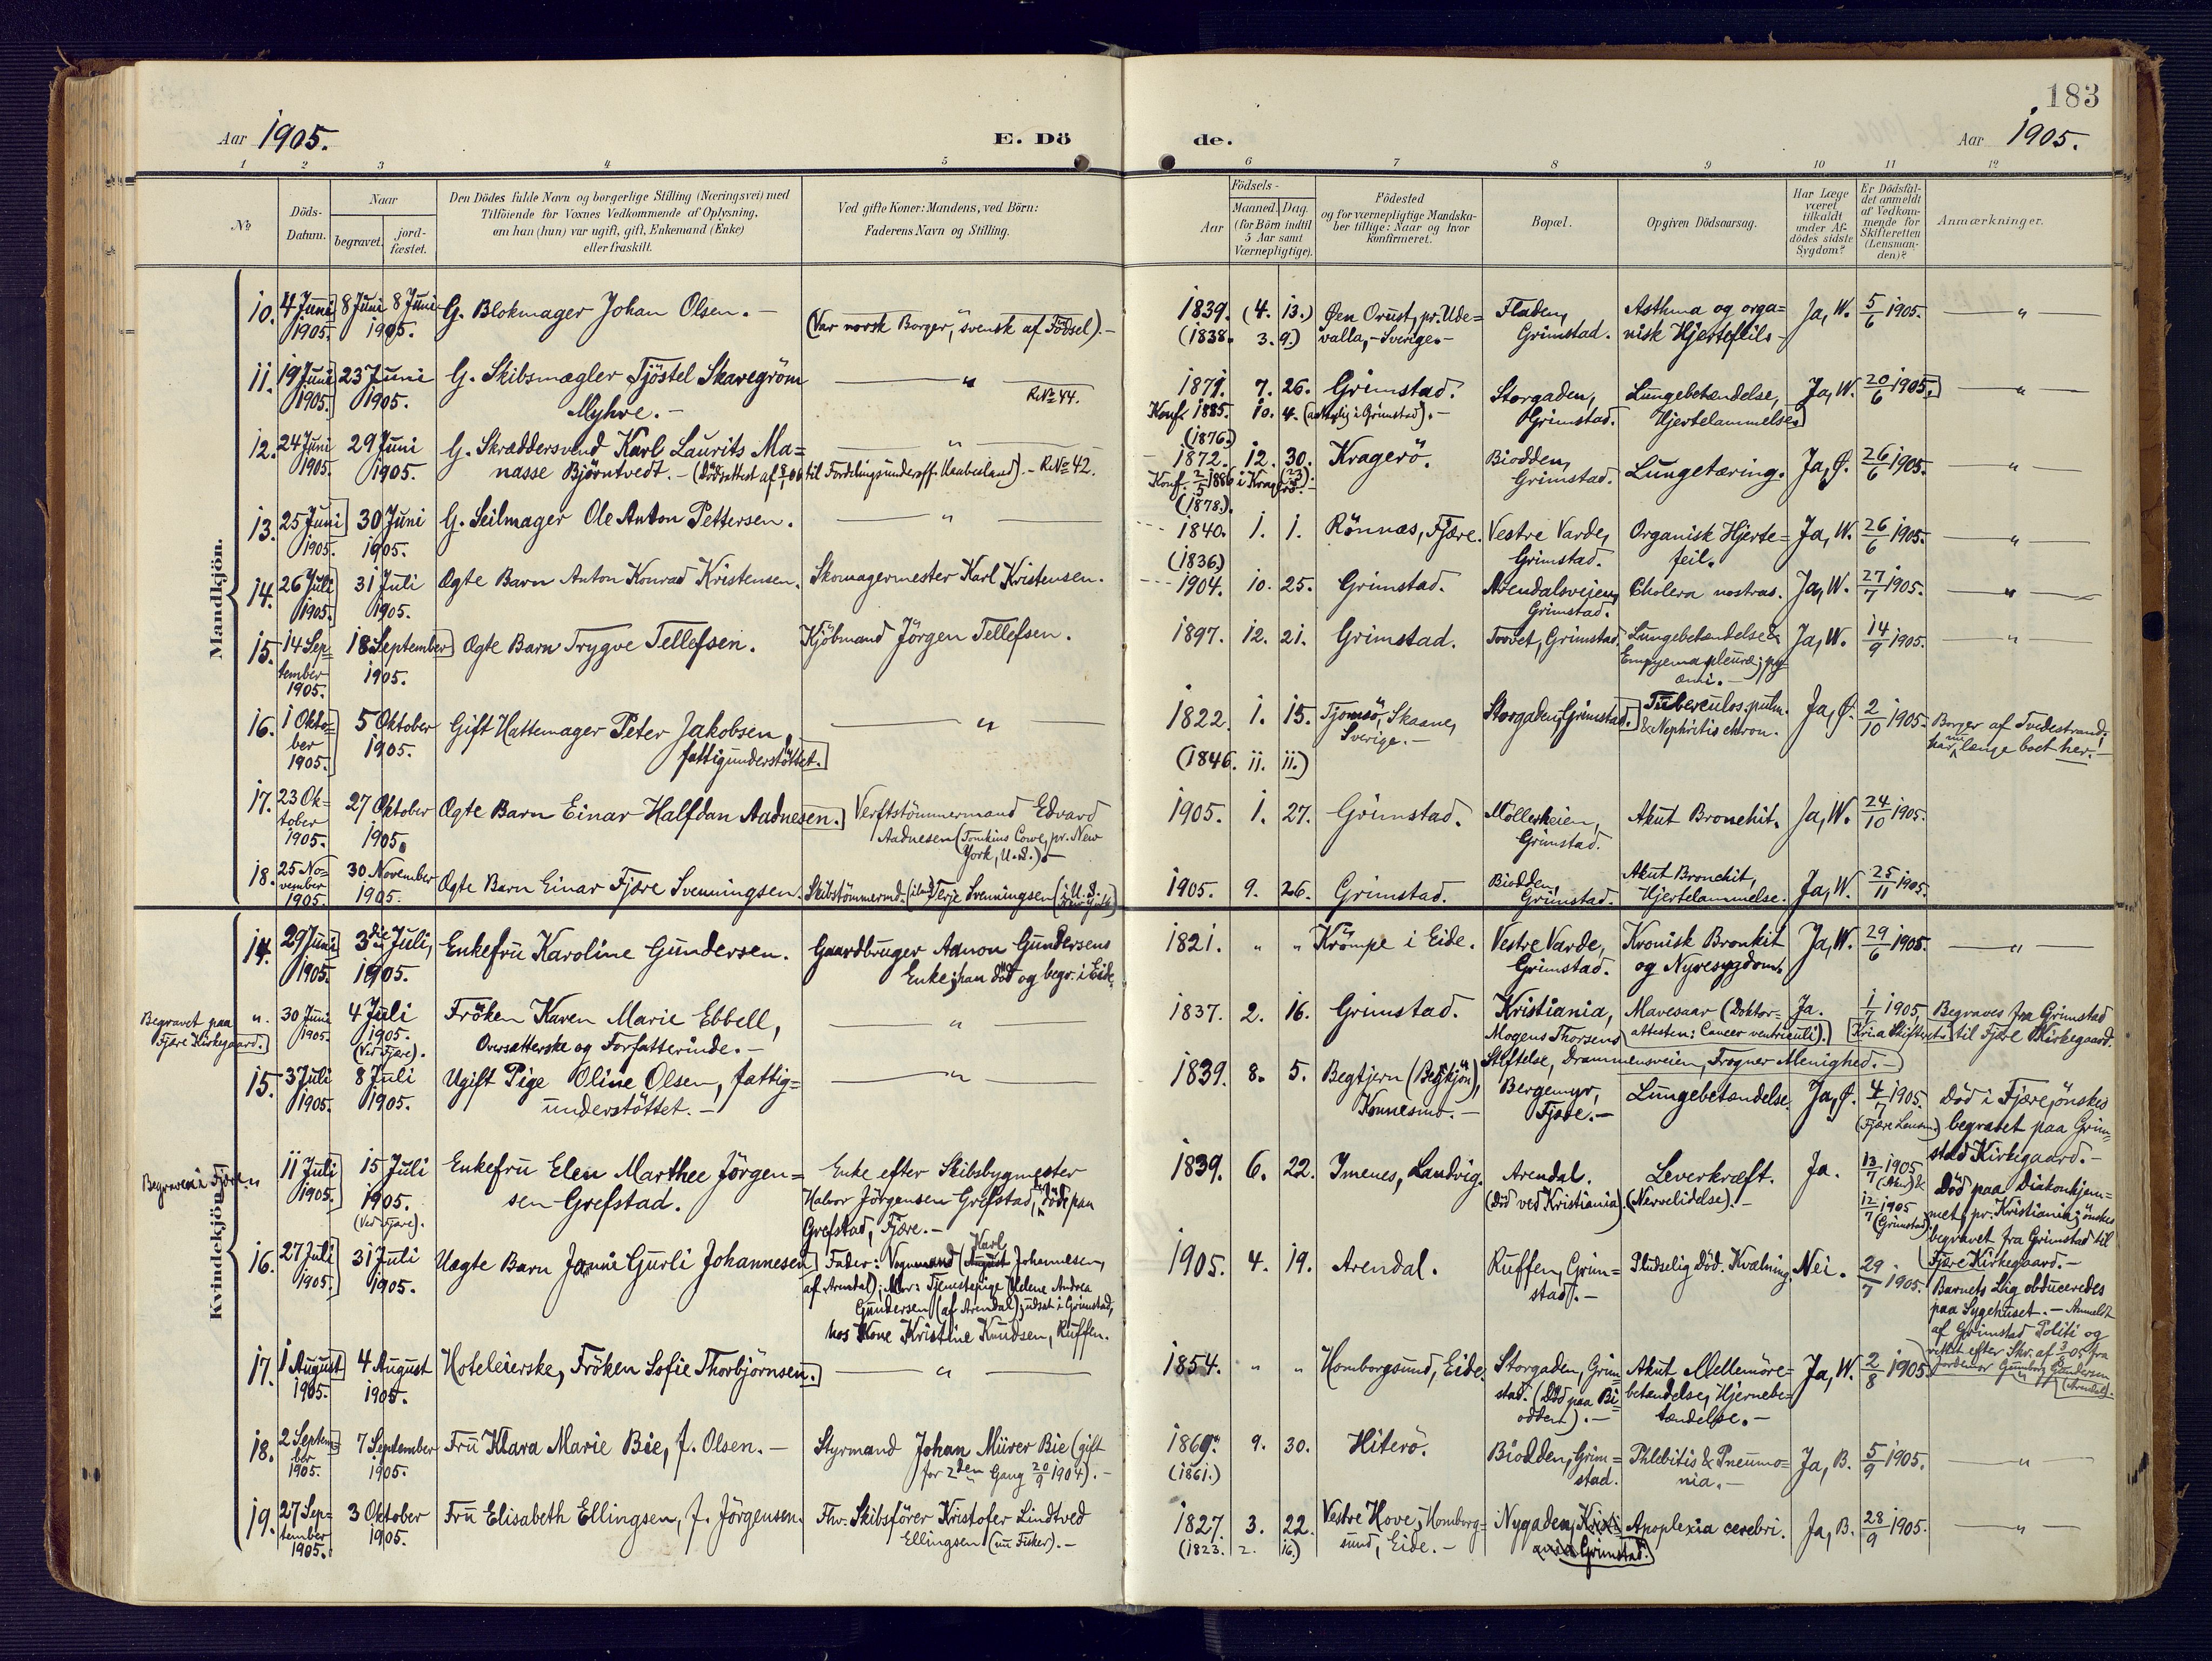 183
Aar 1905. E. Dö de. Aar 1905.
1 2 3 4 5 6 7 8 9 10 11 12
No
Döds-Datum.
Naar
begravet.
jord-fæstet.
Den Dödes fulde Navn og borgerlige Stilling (Næringsvei) med
Tilföiende for Voxnes Vedkommende af Oplysning,
om han (hun) var ugift, gift, Enkemand (Enke)
eller fraskilt.
Ved gifte Koner: Mandens, ved Börn:
Faderens Navn og Stilling.
Födsels-
Aar
Maaned. Dag.
(for Börn indtil
5 Aar samt
Værnepligtige).
Födested
og for værnepligtige Mandska-
ber tillige: Naar og hvor
Konfirmeret.
Bopæl.
Opgiven Dödsaarsag.
Har Læge
været
tilkaldt
under Af-
dödes sidste
Sygdom?
Er Dödsfal-
det anmeldt
af Vedkom-
mende for
Skifteretten
(Lensman-
den)?
Anmærkninger.
Mandkjön.
10. 4 Juni 1905. 8 Juni 8 Juni 1905. G. Blokmager Johan Olsen. –
(Var norsk Borger, svensk af Födsel). –
1839. (4. 13.) Øen Orust, pr. Ude= Fladen, Asthma og orga= Ja, W. 5/6 1905. "
(1838. 3. 9.) valla, – Sverige. – Grimstad. nisk Hjertefeil. –
11. 19 Juni 1905. 23 Juni 1905. G. Skibsmægler Tjöstel Skaregröm "
Myhre. – R.No 44.
1871. 7. 26. Grimstad. Storgaden, Lungebetændelse, Ja, W. 20/6 1905. "
Konf. 1885. 10. 4. i Grimstad). – Grimstad. Hjertelammelse.
(1876.)
12. 24 Juni 1905. 29 Juni 1905. G. Skræddersvend Karl Laurits Ma= "
nasse Bjöntvedt. – R.No 42.
1872. 12. 30. Kragerö. Biodden, Lungetæring. Ja, Ø. 26/6 1905. "
Konf. 2/5 1886 i Kragerö. – (23). Grimstad.
(1878.)
13. 25 Juni 1905. 30 Juni 1905. G. Seilmager Ole Anton Pettersen. "
1840. 1. 1. Rönnæs, Fjære. Vestre Varde, Organisk Hjerte= Ja, W. 26/6 1905. "
(1836.) Grimstad. feil.
14. 26 Juli 1905. 31 Juli 1905. Ægte Barn Anton Konrad Kristensen. Skomagermester Karl Kristensen.
1904. 10. 25. Grimstad. Arendalsveien, Cholera nostras. Ja, W. 27/7 1905. "
Grimstad.
15. 14 Sep=tember 1905. 18 September 1905. Ægte Barn Trygve Tellefsen. Kjöbmand Jörgen Tellefsen.
1897. 12. 21. Grimstad. Torvet, Grimstad. Lungebetændelse & Ja, W. 14/9 1905. "
Empyema pleuræ; py=
æmi. –
16. 1 Okto=ber 1905. 5 Oktober 1905. Gift Hattemager Peter Jakobsen, "
fattigunderstöttet.
1822. 1. 15. Tjomsö, Skaane, Storgaden, Grimstad. Tuberculos. pulm. Ja, Ø. 2/10 1905. Borger af Tvedestrand;
Sverige. – & Nephritis chron. har nu længe boet her. –
(1846. 11. 11.)
17. 23 Ok=tober 1905. 27 Oktober 1905. Ægte Barn Einar Halfdan Aadnesen. Verftstömmermand Edvard
Aadnesen (Tomkins Cowe, pr. New
York, U. S.). –
1905. 1. 27. Grimstad. Möllerheien, Akut Bronchit. Ja, W. 24/10 1905.
Grimstad.
18. 25 No=vember 1905. 30 November 1905. Ægte Barn Einar Fjære Svenningsen. Skibstömmermd. Terje Svenningsen
1905. 9. 26. Grimstad. Biodden, Akut Bronchit, Ja, W. 25/11 1905.
Grimstad. Hjertelammelse.
Kvindekjön.
14. 29 Juni 1905. 3die Juli, 1905. Enkefru Karoline Gundersen. Gaardbruger Aanon Gundersens
Enke; han död og begr. i Eide.
1821. " " Krömpe i Eide. Vestre Varde, Kronisk Bronkit Ja, W. 29/6 1905. "
Grimstad. og Nyresygdom.
Begravet paa
Fjære Kirkegaard.
". 30 Juni 1905. 4 Juli 1905. (Ved Fjære). Fröken Karen Marie Ebbell, "
Oversætterske og Forfatterinde. –
1837. 2. 16. Grimstad. Kristiania, Mavesaar (Doktor= Ja. 1/7 1905, Begraves fra Grimstad
Mogens Thorsens attesten: Cancer ventriculi). Kr.ia Skifteret. til Fjære Kirkegaard.
Stiftelse, Drammensveien, Frogner Menighed. –
15. 3 Juli 1905. 8 Juli 1905. Ugift Pige Oline Olsen, fattig= "
understöttet. –
1839. 8. 5. Begtjern (Begkjön), Bergemyr, Lungebetændelse. Ja, Ø. 4/7 1905. Död i Fjære; önskes
Konnesmo. – Fjære. – (Fjære Lensm.) begravet paa Grim=
stad Kirkegaard. –
Begraven i Fjære.
" 11 Juli 1905. 15 Juli 1905. (Ved Fjære). Enkefru Elen Marthee Jörgen= Enke efter Skibsbygmester
sen-Grefstad. Halvor Jörgensen Grefstad, döde paa
Grefstad, Fjære. –
1839. 6. 22. Imenes, Landvig. Arendal. Leverkræft. Ja. 13/7 1905 Död paa Diakonhjem=
(Död ved Kristiania). (Nervelidelse). – 12/7 1905 (Grimstad). met, pr. Kristiania; önskes
begravet fra Grimstad til
Fjære Kirkegaard. –
16. 27 Juli 1905. 31 Juli 1905. Uægte Barn Jenni Gurli Johannesen Fader: Vognmand Karl Johannesen,
af Arendal); Mor: Tjenestepige Helene Andrea
Gundersen (af Arendal); udsat i Grimstad,
hos Kone Kristine Knudsen, Ruffen.
1905. 4. 19. Arendal. Ruffen, Grim= Pludselig Död. Kvælning. Nei. 29/7 1905. Barnets Lig obduceredes
stad. – paa Sygehuset. – Anmeldt
af Grimstad Politi og
17. 1 August 1905. 4 August 1905. Hoteleierske, Fröken Sofie Thorbjörnsen. "
1854. " " Homborgsund, Eide. Storgaden, Grim= Akut Mellemöre= Ja, W. 2/8 1905.
stad. (Död paa Bi= betændelse, Hjernebe=
odden). – tændelse. –
18. 2 Septem=ber 1905. 7 September 1905. Fru Klara Marie Bie, f. Olsen. – Styrmand Johan Mürer Bie (gift
for 2den Gang 20/9 1904). –
1869. 9. 30. Hiterö. Biodden, Grim= Phlebitis & Pneumo= Ja, B. 5/9 1905. "
(1861.) stad. nia. –
19. 27 Sep=tember 1905. 3 Oktober 1905. Fru Elisabeth Ellingsen, f. Jörgensen. Fhv. Skibsförer Kristofer Lindtved
Ellingsen (nu Fisker). –
1827. 3. 22. Vestre Hove, Homborg= Nygaden, Apoplexia cerebri. Ja, B. 28/9 1905. "
(1823. 2. 16.) sund, Eide. – Grimstad.